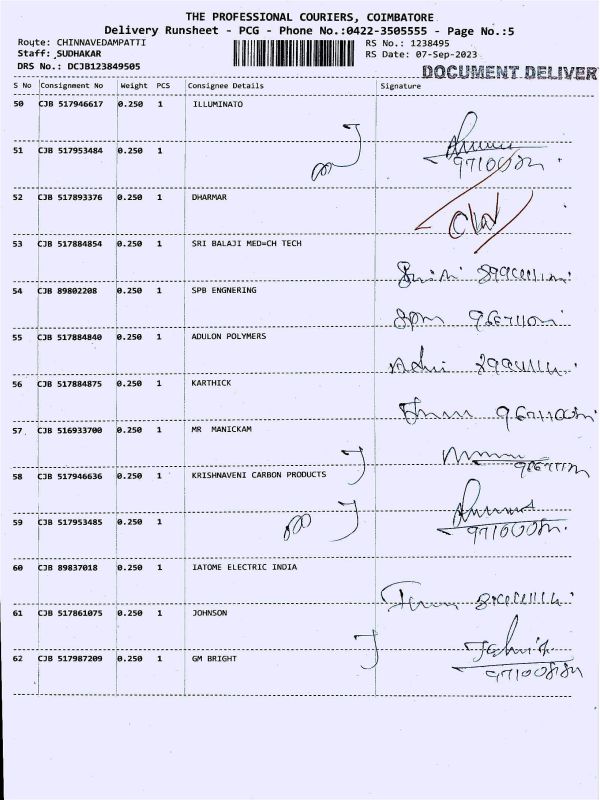 THE PROFESSIONAL COURIERS, COIMBATORE
Delivery Runsheet - PCG - Phone No.:0422-3505555 - Page No.:5
Route: CHINNAVEDAMPATTI RS No.: 1238495
Staff: SUDHAKAR RS Date: 07-Sep-2023
DRS No.: DCJB123849505 DOCUMENT DELIVER
S No Consignment No Weight PCS Consignee Details Signature
50 CJB 517946617 0.250 1 ILLUMINATO
51 CJB 517953484 0.250 1
52 CJB 517893376 0.250 1 DHARMAR
53 CJB 517884854 0.250 1 SRI BALAJI MED=CH TECH
54 CJB 89802208 0.250 1 SPB ENGNERING
55 CJB 517884840 0.250 1 ADULON POLYMERS
56 CJB 517884875 0.250 1 KARTHICK
57 CJB 516933700 0.250 1 MR MANICKAM
58 CJB 517946636 0.250 1 KRISHNAVENI CARBON PRODUCTS
59 CJB 517953485 0.250 1
60 CJB 89837018 0.250 1 IATOME ELECTRIC INDIA
61 CJB 517861075 0.250 1 JOHNSON
62 CJB 517987209 0.250 1 GM BRIGHT